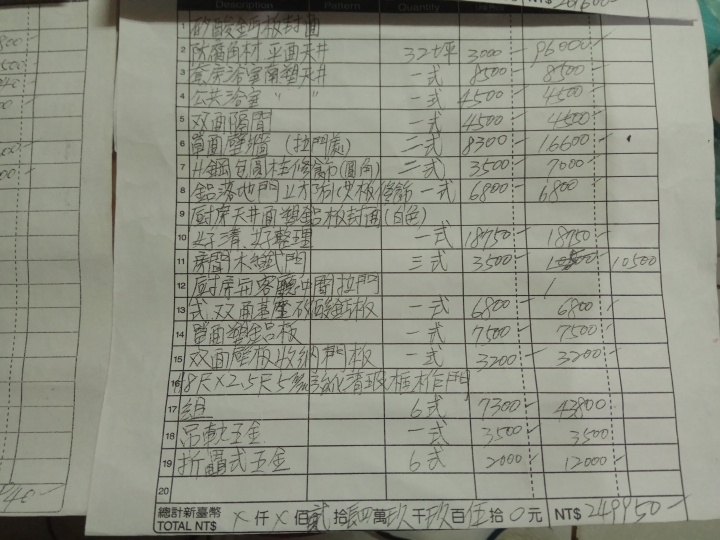 Description Pattern Quantity NT$
1 矽酸鈣板封面
2 防腐角材平面天井 32坪 3000 96000
3 套房浴室南塑天井 一式 8500 8500
4 公共浴室 〃 〃 一式 4500 4500
5 双面隔間 一式 4500 4500
6 單面壁牆 (拉門處) 二式 8300 16600
7 H鋼包圓柱修飾(圓角) 二式 3500 7000
8 鋁落地門 修飾 一式 6800 6800
9 廚房天井面塑鋁板封面(白色)
10 清、整理 一式 18750 18750
11 房間木 門 三式 3500 10500
12 廚房用客廳中間拉門
13 式双面基座矽酸鈣板 一式 6800 6800
14 單面塑鋁板 一式 7500 7500
15 双面壁板收納門板 一式 3200 3200
16 8尺X2.5尺5 強化清玻框作門
17 組 6式 7300 43800
18 吊軌五金 一式 3500 3500
19 折疊式五金 6式 2000 12000
20
總計新臺幣 X仟X佰貳拾肆萬玖千玖百伍拾0元 NT$ 249950
TOTAL NT$